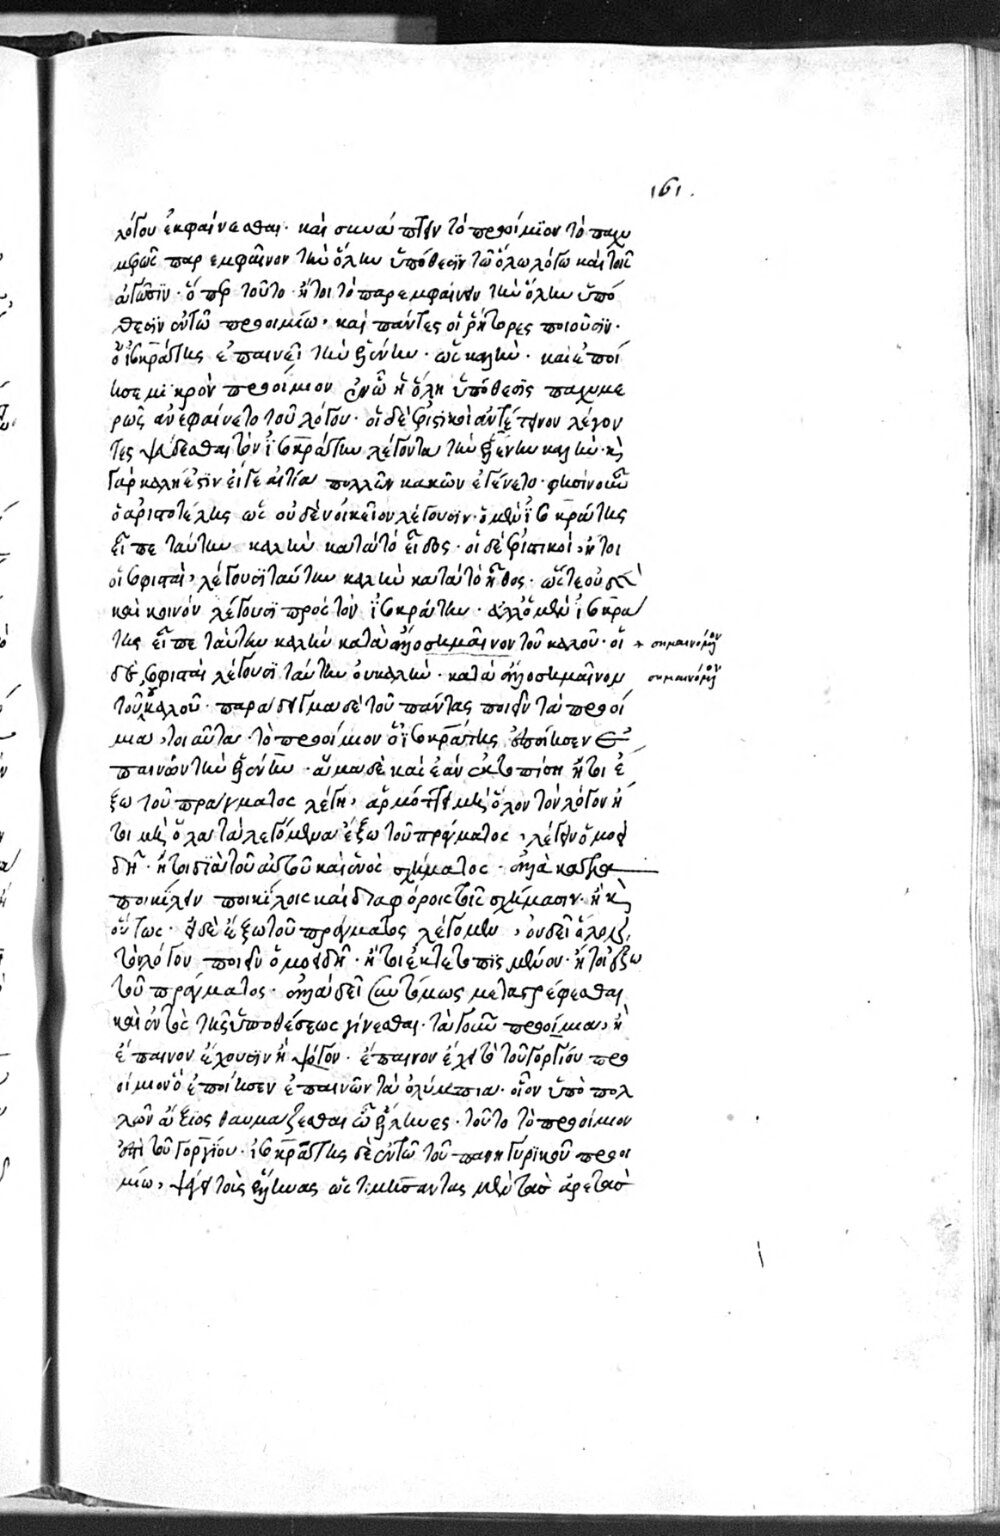 161.
λόγου ἐκφαίνεσθαι· καὶ συνάπτειν τὸ προοίμιον τὸ παχυ
μερῶς παρεμφαῖνον τὴν ὅλην ὑπόθεσιν τῶ ὅλω λόγω καὶ τοῖς
ἀγῶσιν· ὅπερ τοῦτο· ἤτοι τὸ παρεμφαίνειν τὴν ὅλην ὑπό
θεσιν ἐν τῶ προοιμίω· καὶ πάντες οἱ ῥήτορες ποιοῦσιν·
ὁ ἰσοκράτης ἐπαινεῖ τὴν ἑλένην· ὡς καλὴν· καὶ ἐποί
ησε μικρὸν προοίμιον ἐν ὧ ἡ ὅλη ὑπόθεσις παχυμε
ρῶς ἀνεφαίνετο τοῦ λόγου· οἱ δὲ ἐριστικοὶ ἀντέτεινον λέγον
τες ψεύδεσθαι τὸν ἰσοκράτην λέγοντα τὴν ἑλένην καλὴν· οὐ
γὰρ καλή ἐστιν εἴγε αἰτία πολλῶν κακῶν ἐγένετο· φησὶν οὖν
ὁ ἀριστοτέλης ὡς οὐδὲν οἰκεῖον λέγουσιν· ὁ μὲν ἰσοκράτης
εἶπε ταύτην καλὴν κατὰ τὸ εἶδος· οἱ δὲ ἐριστικοί, ἤτοι
οἱ σοφισταὶ, λέγουσι ταύτην καλὴν κατὰ τὸ ἦθος· ὥστε οὐδὲ
καὶ κοινὸν λέγουσι πρὸς τὸν ἰσοκράτην· ἀλλ' ὁ μὲν ἰσοκρά
της εἶπε ταύτην καλὴν κατὰ ἄλλο σημαῖνον τοῦ καλοῦ· οἱ
σημαινόμενον
δὲ σοφισταὶ λέγουσι ταύτην οὐ καλὴν· κατὰ ἄλλο σημαῖνον
σημαινόμενον
τοῦ καλοῦ· παράδειγμα δὲ τοῦ πάντας ποιεῖν τὰ προοί
μια, τοιαῦτα· τὸ προοίμιον ὃ ἰσοκράτης ἐποίησεν ἐ
παινῶν τὴν ἑλένην· ἅμα δὲ καὶ ἐὰν ἐκτοπίση ἤτοι ἔ
ξω τοῦ πράγματος λέγη, ἁρμόττει μὴ ὅλον τὸν λόγον ἤ
τοι μὴ ὅλα τὰ λεγόμενα ἔξω τοῦ πράγματος, λέγειν ὁμοει
δῆ· ἤτοι διὰ τοῦ αὐτοῦ καὶ ἑνὸς σχήματος· ἀλλὰ
ποικίλλειν ποικίλοις καὶ διαφόροις τοῖς σχήμασιν· ἢ καὶ
οὕτως· εἰ δὲ ἔξω τοῦ πράγματος λέγομεν, οὐ δεῖ ὅλον
τὸν λόγον ποιεῖν ὁμοειδῆ· ἤτοι ἐκτετοπισμένον· ἤτοι ἔξω
τοῦ πράγματος· ἀλλὰ δεῖ συντόμως μεταστρέφεσθαι
καὶ ἐντὸς τῆς ὑποθέσεως γίνεσθαι· τὰ γοῦν προοίμια, ἢ
ἔπαινον ἔχουσιν ἢ ψόγον· ἔπαινον ἔχει τὸ τοῦ γοργίου προ
οίμιον ὃ ἐποίησεν ἐπαινῶν τὰ ὀλύμπια· οἷον ὑπὸ πολ
λῶν ἄξιος θαυμάζεσθαι ὦ ἕλληνες· τοῦτο τὸ προοίμιον
ἐστὶ τοῦ γοργίου· ἰσοκράτης δὲ ἐν τῶ τοῦ πανηγυρικοῦ προοι
μίω, ψέγει τοὺς ἕλληνας ὡς τιμήσαντας μὲν τὰς ἀρετὰς